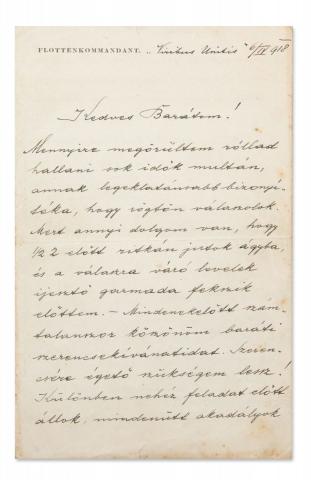 FLOTTENKOMMANDANT. „Viribus Unitis" 6/IV 918
Kedves Barátom!
Mennyire megörültem rólad
hallani sok idők multán,
annak legeklatánsabb bizonyi-
téka, hogy rögtön válaszolok.
Mert annyi dolgom van, hogy
½ 2 előtt ritkán jutok ágyba,
és a válaszra váró levelek
ijesztő garmada fekszik
előttem. – Mindenekelőtt szám-
talanszor köszönöm baráti
szerencsekivánatidat. Szeren-
csére égető szükségem lesz!
Különben nehéz feladat előtt
állok, mindenütt akadályok